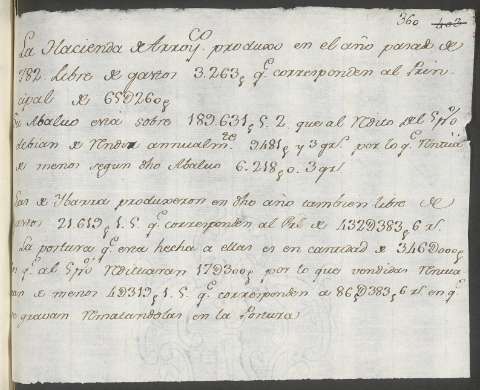 360 403
La Hacienda de Arroyo produxo en el año pasado de
782. Libre de gastos 3.263p q.e corresponden al Prin-
cipal de 65D260p
Su Abaluo era sobre 189.631p 5. 2. que al Rdito del 5 p%
debian de Rendir annualm.te 9481p y 3 grs. por lo q.e Rentua
de menos segun dho Abaluo 6.218p 0. 3 grs.
Las de Ybarra produxeron en dho año tambien libre de
gastos 21.619p 1. 5. q.e corresponden al Pral. de 432D383p 6 rs.
La postura q.e esta hecha a ellas es en cantidad de 346D000p
q.e al 5 p% Redituaran 17D300p por lo que vendidas Rentua
ran de menos 4D319p 1. 5. q.e corresponden a 86D383p 6 rs. en q.e
se gravan Rematandolas en la Postura